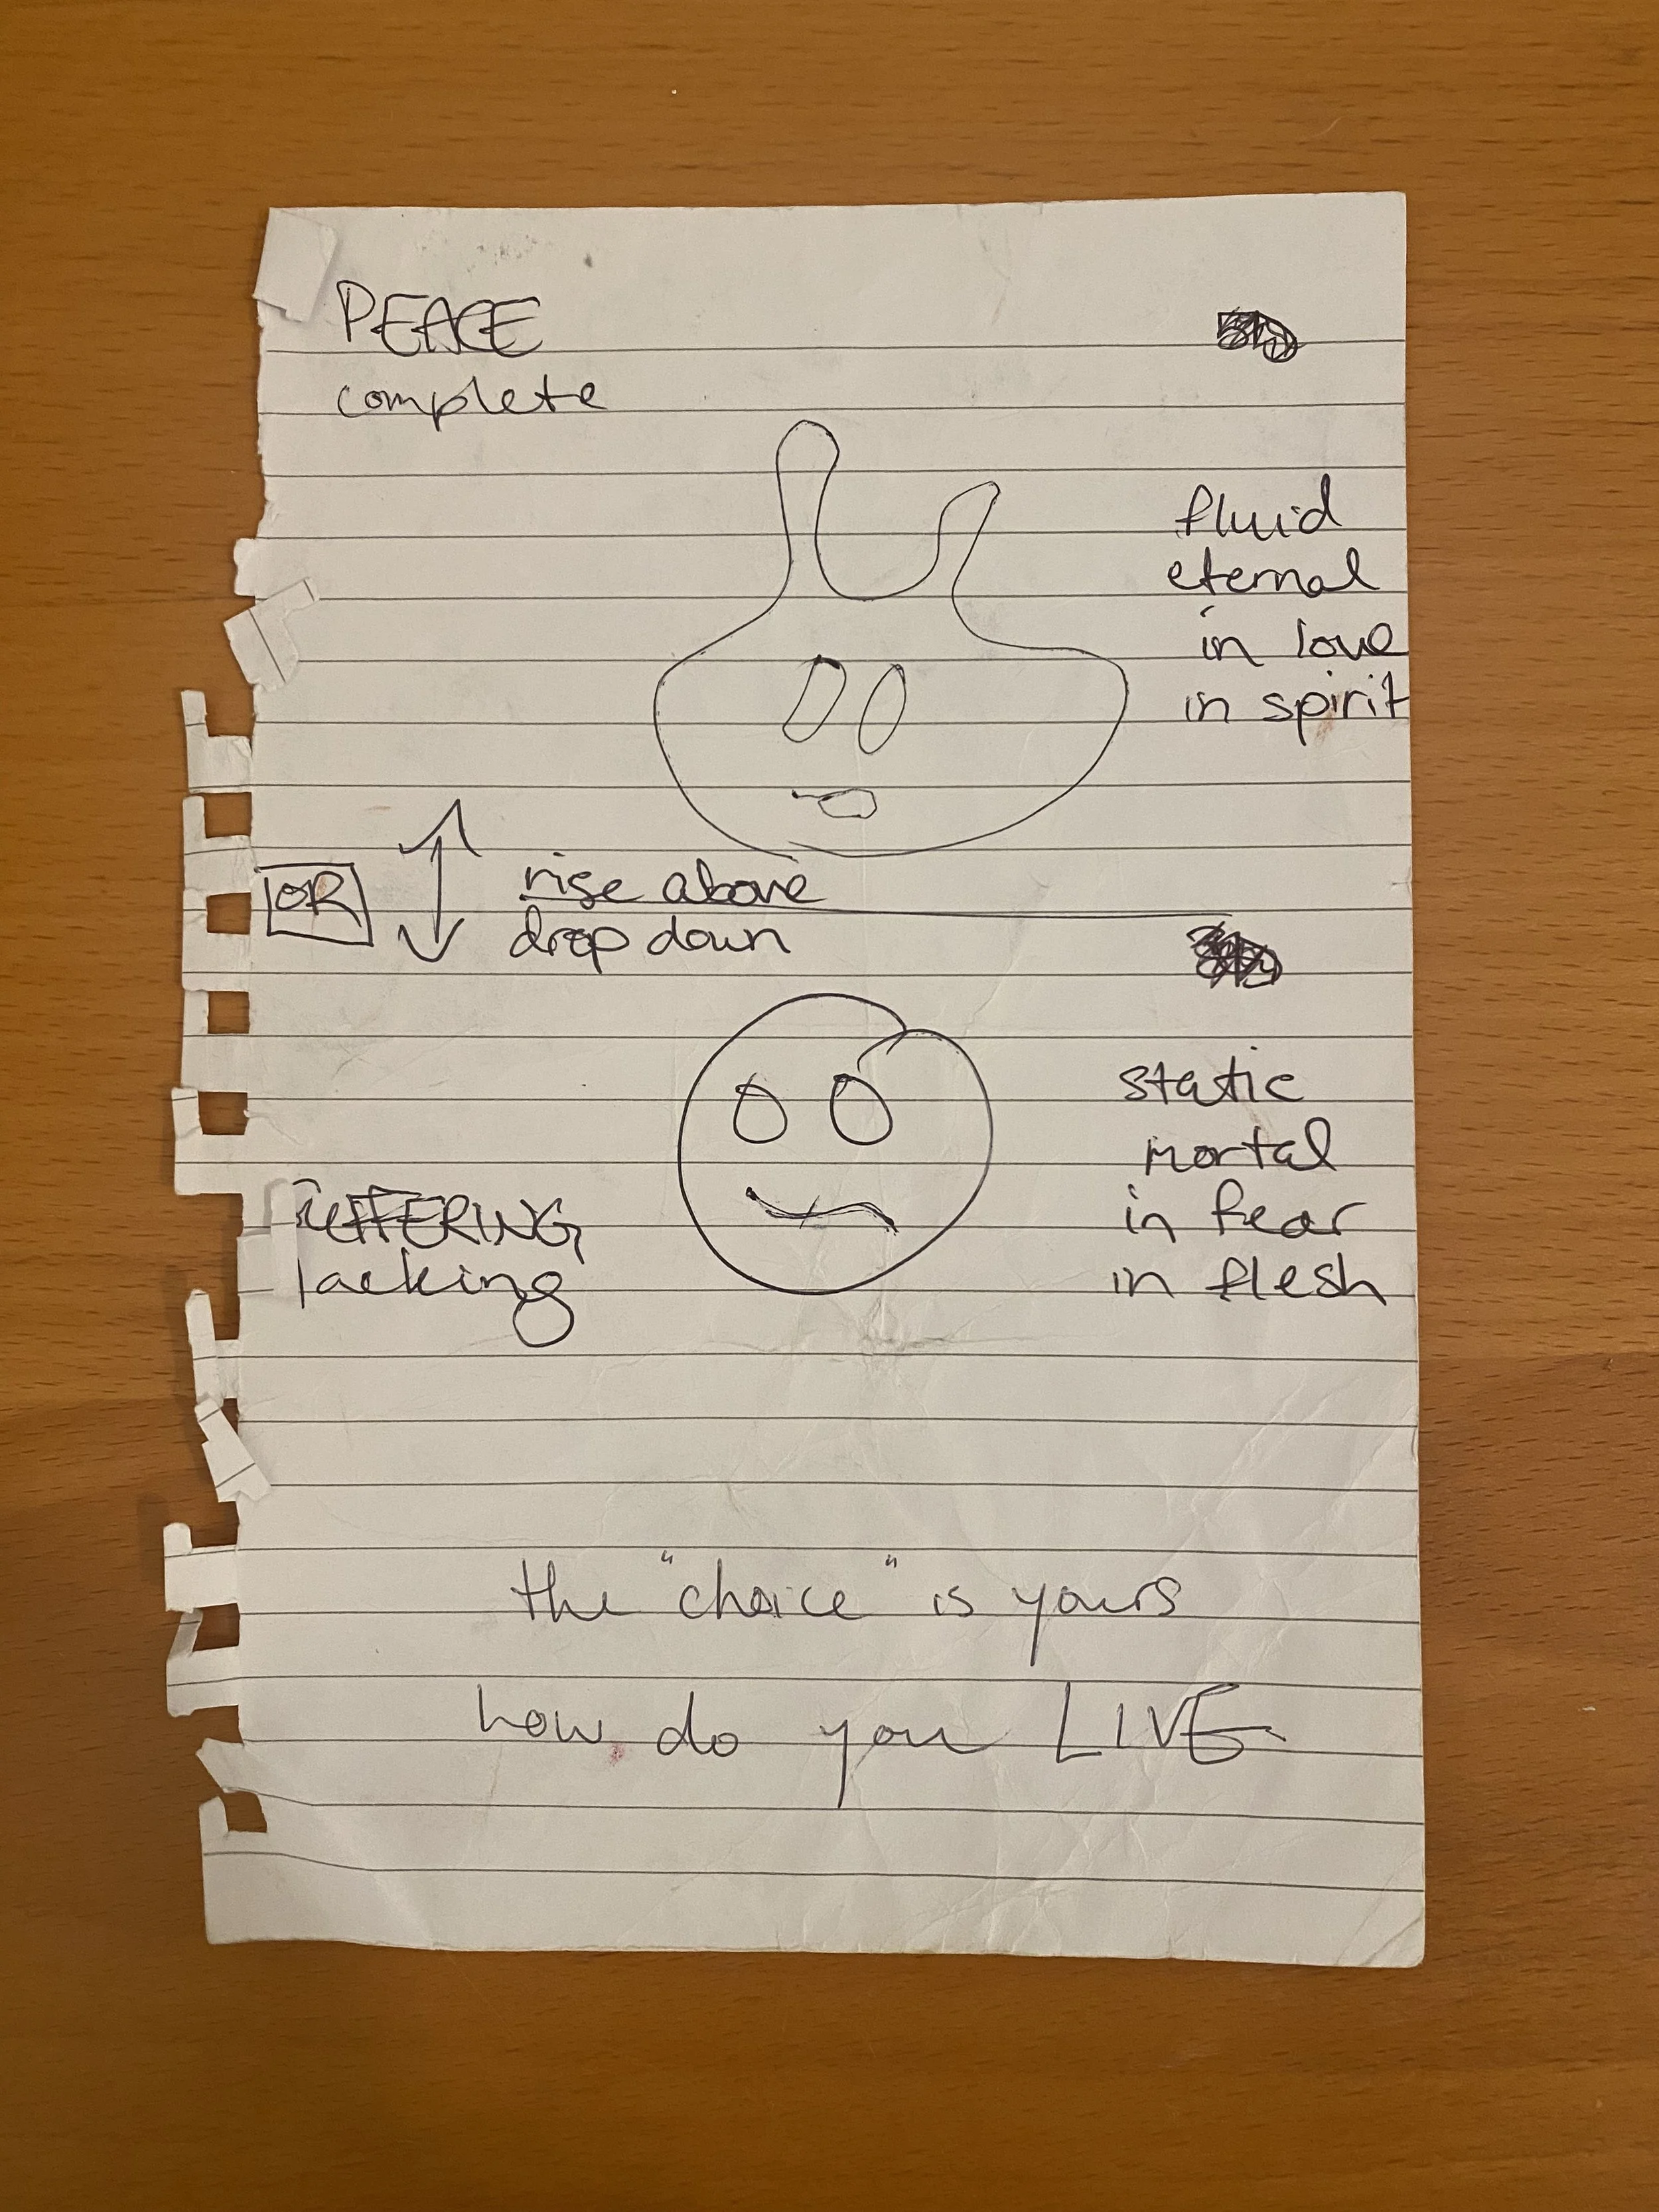 PEACE
complete
fluid
eternal
in love
in spirit
OR
rise above
drop down
static
mortal
in fear
in flesh
SUFFERING
lacking
the "choice" is yours
how do you LIVE